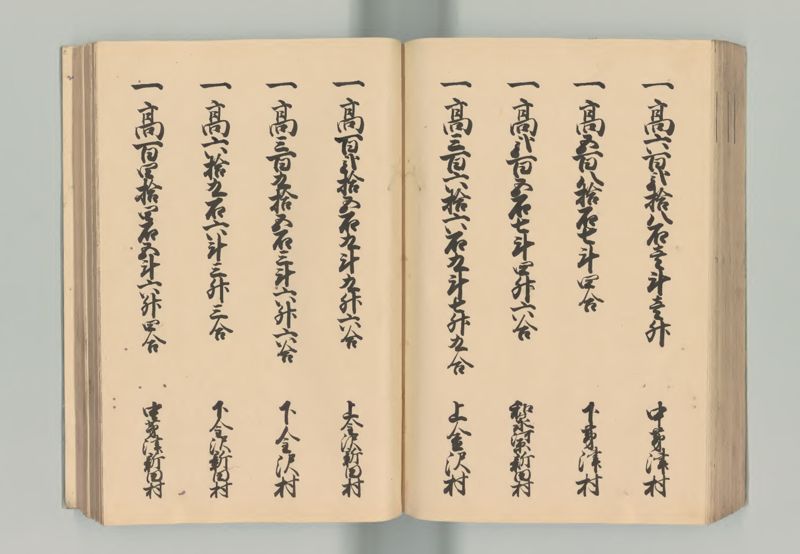 一高六百弐拾八石壱斗壱升
中茅津村
一高五百八拾石七斗四合
下茅津村
一高弐百五石七斗四升六合
新田村
一高三百六拾六石九斗七升九合
上金沢村
一高百弐拾五石九斗九升六合
上金沢新田村
一高三百九拾五石三斗六升六合
下金沢村
一高六拾九石六斗三升三合
下金沢新田村
一高百四拾四石五斗六升四合
中茅津新田村